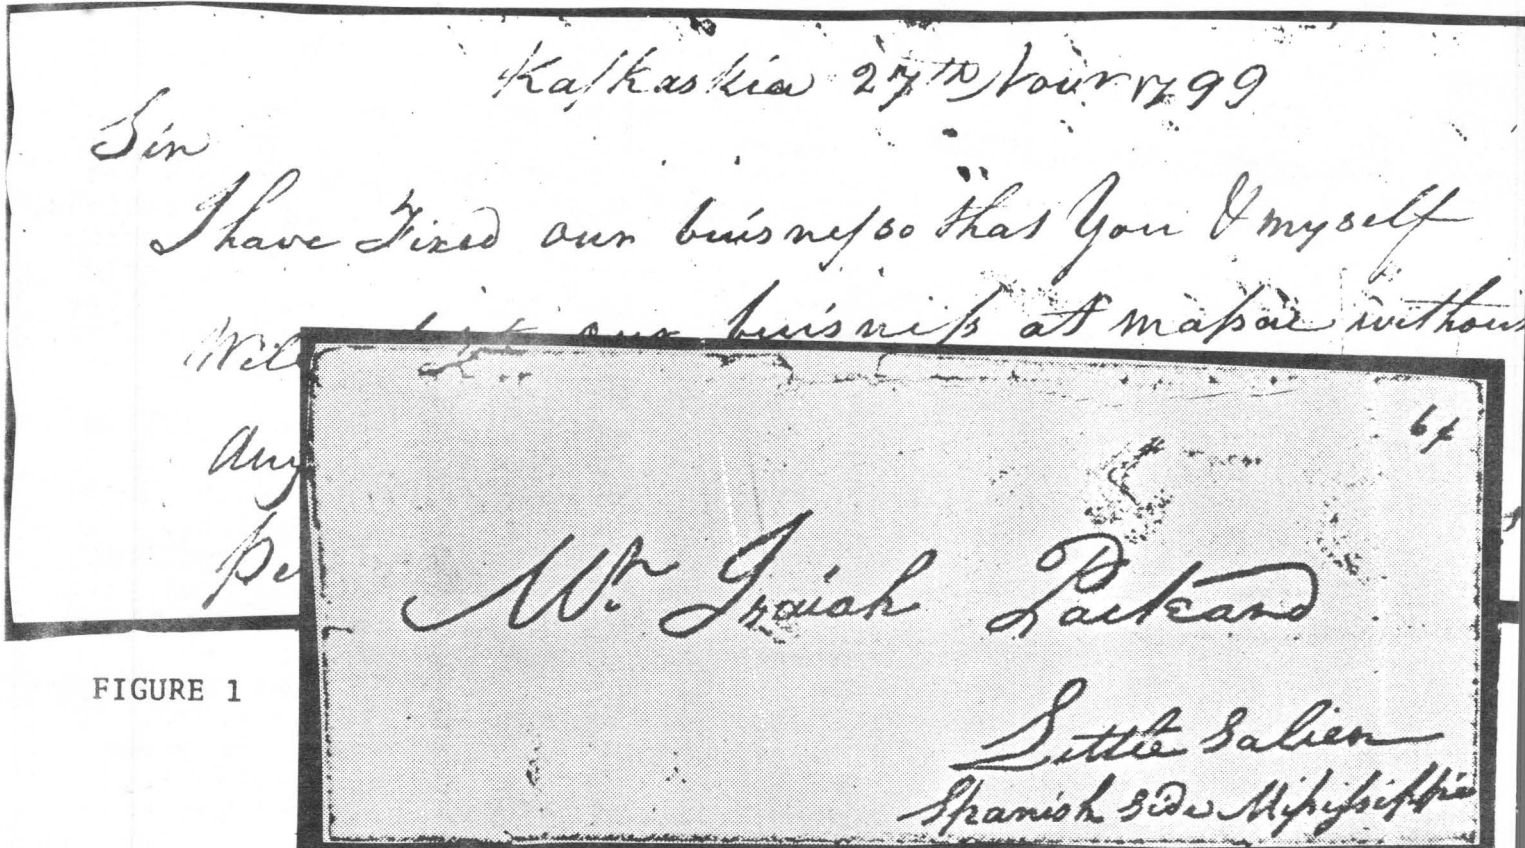 Kaſkaskia 27th Novr 1799
Sir
I have Fixed our buisneſs so that You & myself
Will our buisniſs at maſsac without
Any
pe
6
Mr Isaiah Packard
Little Salien
Spanish side Miſsiſsippie
FIGURE 1